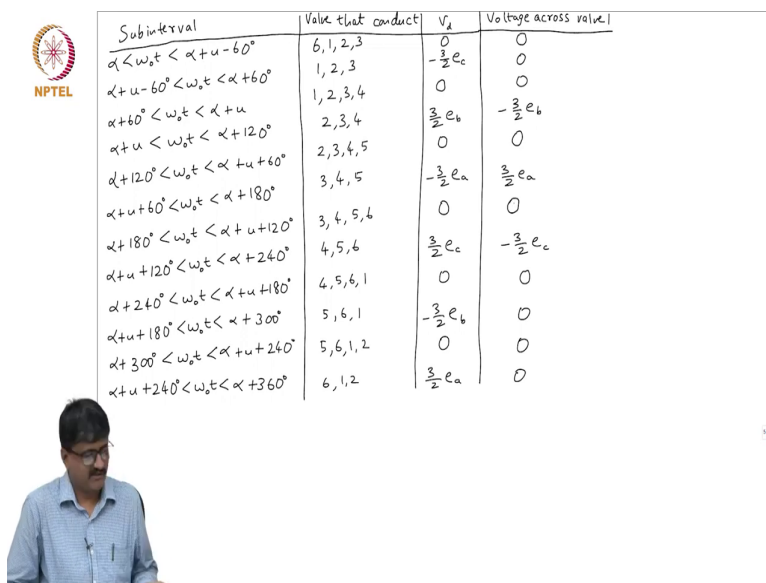 Subinterval | Valve that conduct | Vd | Voltage across valve 1
α < ω₀t < α+u-60° | 6,1,2,3 | 0 | 0
α+u-60° < ω₀t < α+60° | 1,2,3 | -3/2 ec | 0
α+60° < ω₀t < α+u | 1,2,3,4 | 0 | 0
α+u < ω₀t < α+120° | 2,3,4 | 3/2 eb | -3/2 eb
α+120° < ω₀t < α+u+60° | 2,3,4,5 | 0 | 0
α+u+60° < ω₀t < α+180° | 3,4,5 | -3/2 ea | 3/2 ea
α+180° < ω₀t < α+u+120° | 3,4,5,6 | 0 | 0
α+u+120° < ω₀t < α+240° | 4,5,6 | 3/2 ec | -3/2 ec
α+240° < ω₀t < α+u+180° | 4,5,6,1 | 0 | 0
α+u+180° < ω₀t < α+300° | 5,6,1 | -3/2 eb | 0
α+300° < ω₀t < α+u+240° | 5,6,1,2 | 0 | 0
α+u+240° < ω₀t < α+360° | 6,1,2 | 3/2 ea | 0
NPTEL